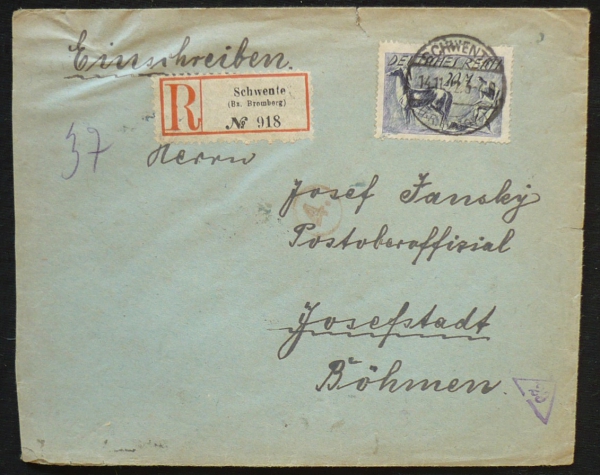 Einschreiben.
DEUTSCHES REICH
SCHWENTE
14.11.
R
Schwente
(Bz. Bromberg)
№ 918
37
Herrn
Josef Janský
Postoberoffizial
4.
Josefstadt
Böhmen.